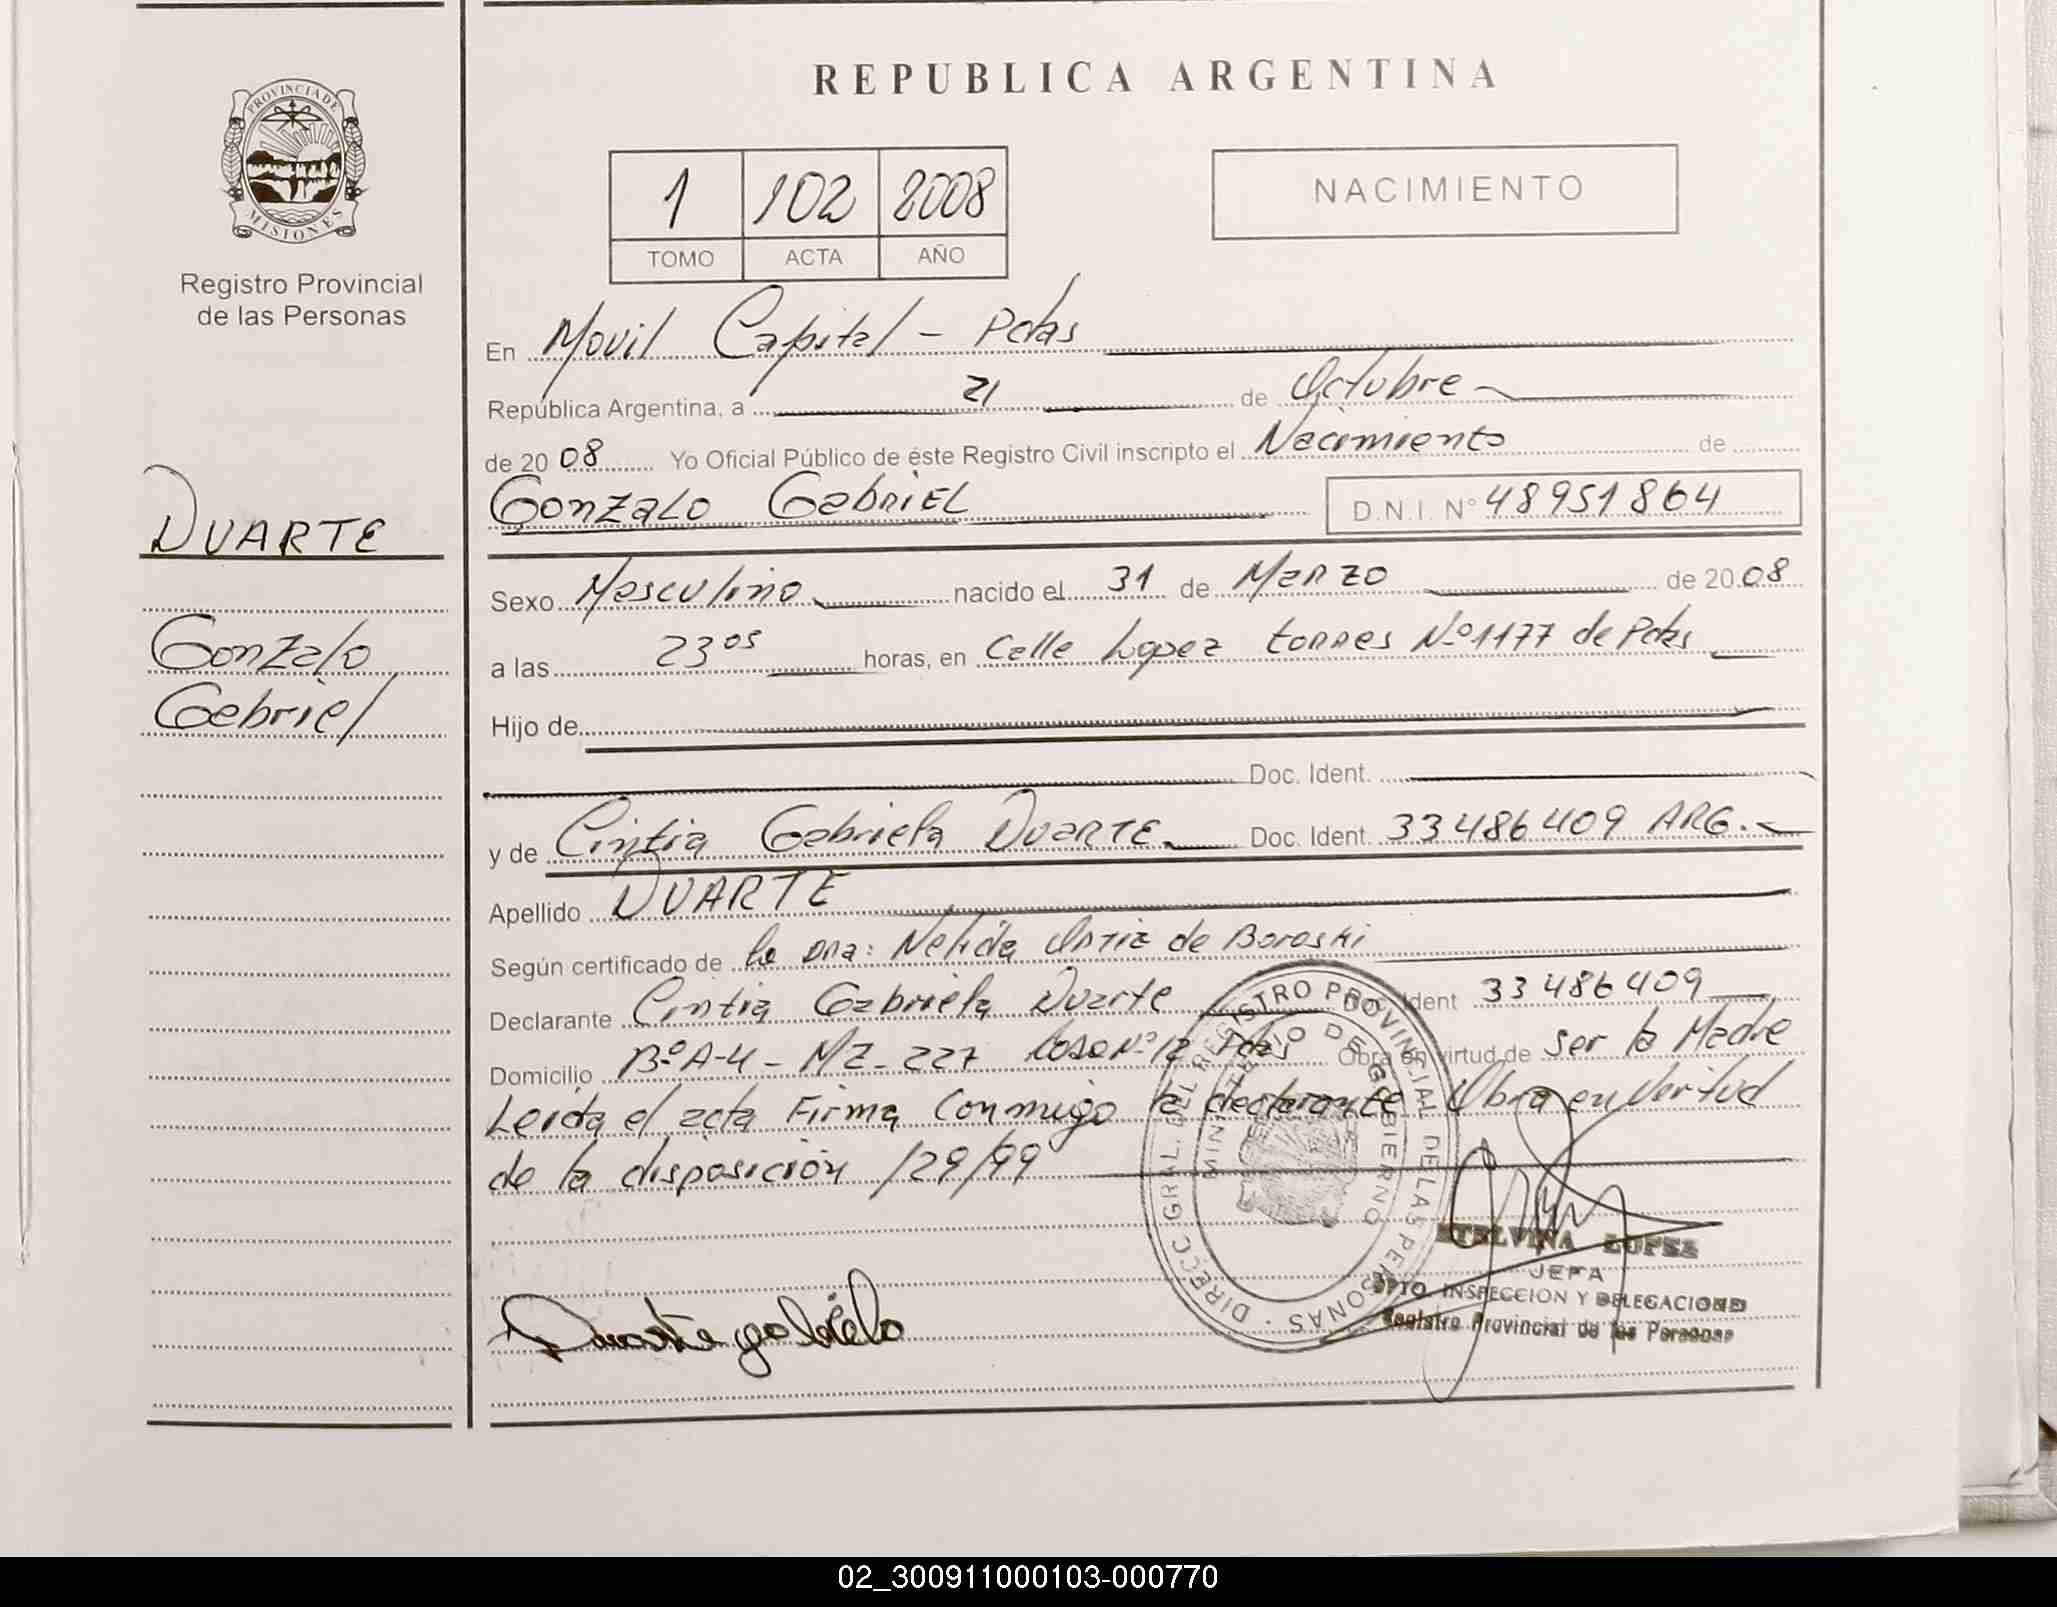 REPUBLICA ARGENTINA
PROVINCIA DE
MISIONES
Registro Provincial
de las Personas
1 102 2008
TOMO ACTA AÑO
NACIMIENTO
En Movil Capital - Pdas
República Argentina, a 21 de Octubre
de 20 08 Yo Oficial Público de éste Registro Civil inscripto el Nacimiento de
DUARTE
Gonzalo
Gabriel
Gonzalo Gabriel D.N.I. Nº 48951864
Sexo Masculino nacido el 31 de Marzo de 20 08
a las 23 05 horas, en Calle Lopez torres Nº 1177 de Pdas
Hijo de
Doc. Ident.
y de Cintia Gabriela Duarte Doc. Ident. 33486409 ARG.
Apellido DUARTE
Según certificado de la Dra: Nelida Ortiz de Boroski
Declarante Cintia Gabriela Duarte Doc. Ident 33486409
Domicilio Bº A-4 - MZ - 227 Casa Nº 12 Pdas Obra en virtud de ser la Madre
Leida el acta Firma Conmigo la declarante Obra en Virtud
de la disposición 129/99
DIRECC. GRAL. DEL REGISTRO PROVINCIAL DE LAS PERSONAS
MINISTERIO DE GOBIERNO
Duarte gabriela
ETELVINA LOPEZ
JEFA
DPTO. INSPECCION Y DELEGACIONES
Registro Provincial de las Personas
02_300911000103-000770